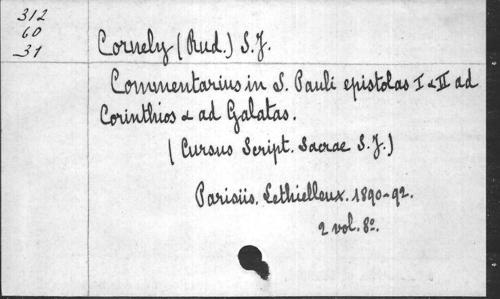 312
60
31
Cornely (Rud.) S.J.
Commentarius in S. Pauli epistolas I & II ad
Corinthios & ad Galatas.
(Cursus Script. Sacrae S.J.)
Parisiis. Lethielleux. 1890-92.
2 vol. 8º.